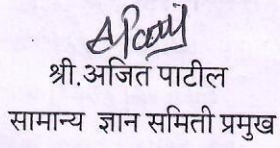 श्री.अजित पाटील
सामान्य ज्ञान समिती प्रमुख